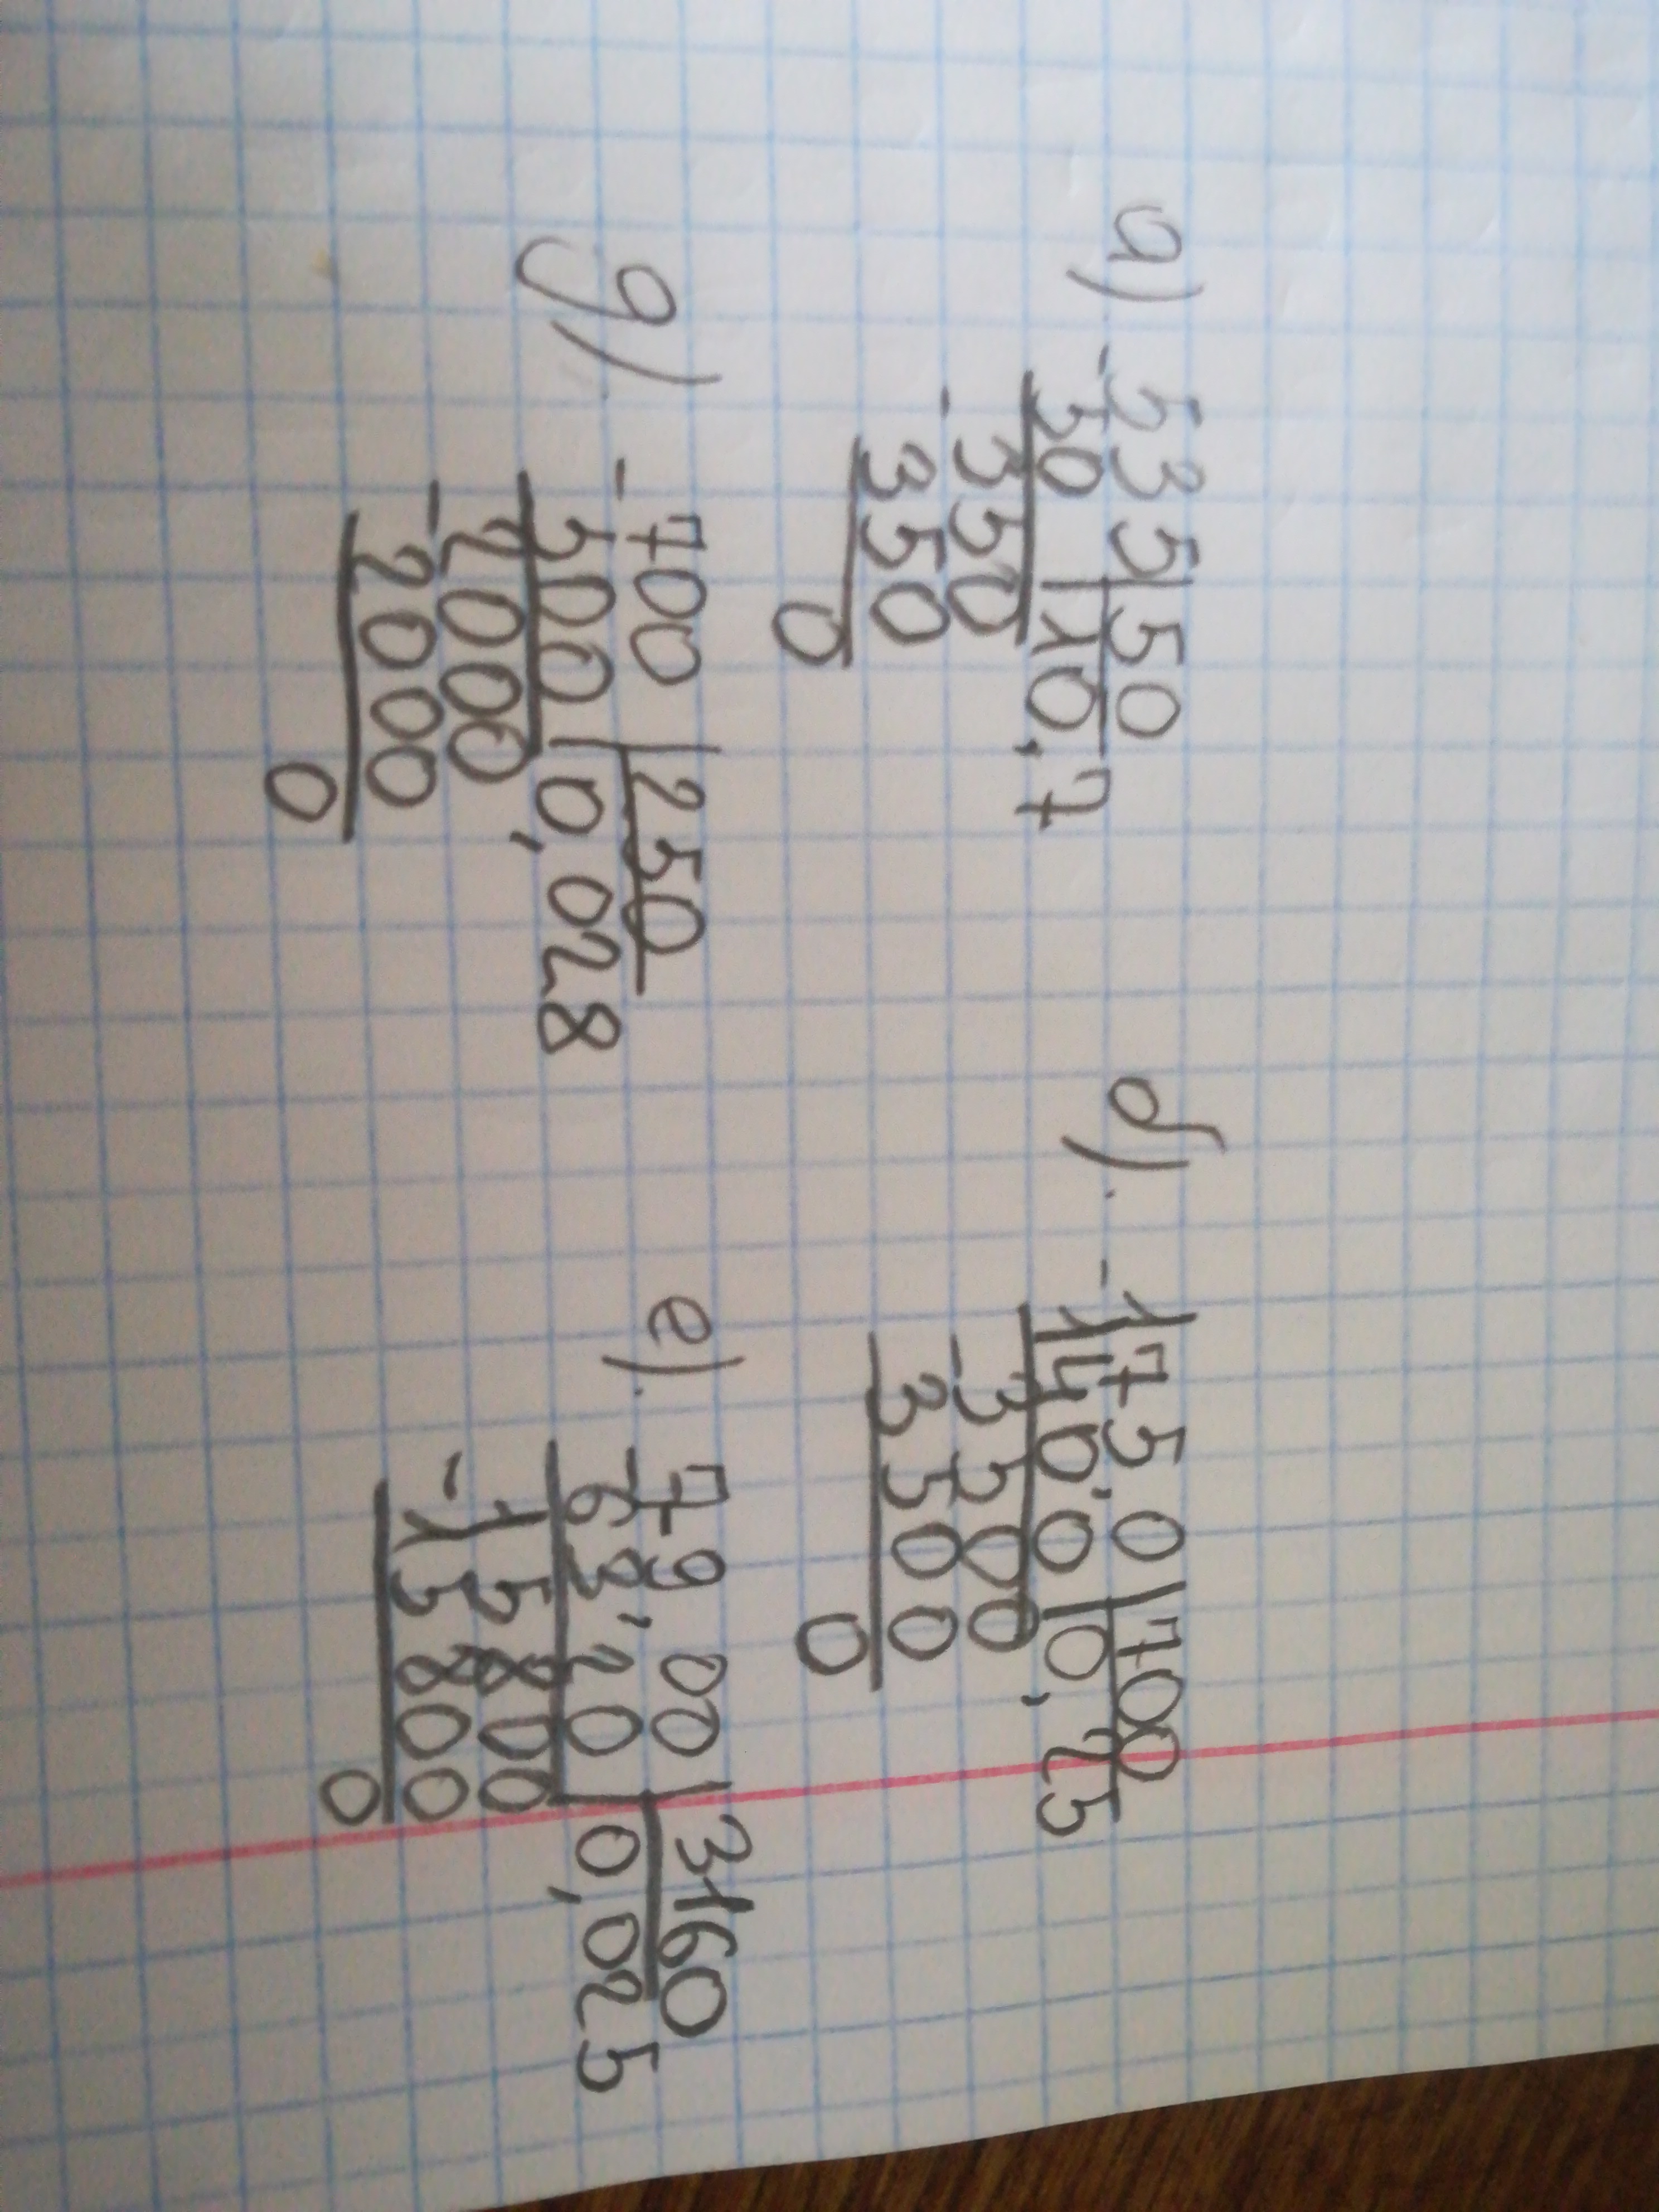 а) - 535 | 50
50 | 10,7
- 350
350
0
б). - 175,0 | 700
140,0 | 0,25
- 3500
3500
0
д). - 700 | 250
500 | 0,028
- 2000
2000
0
е). - 79,00 | 3160
63,20 | 0,025
- 15800
15800
0